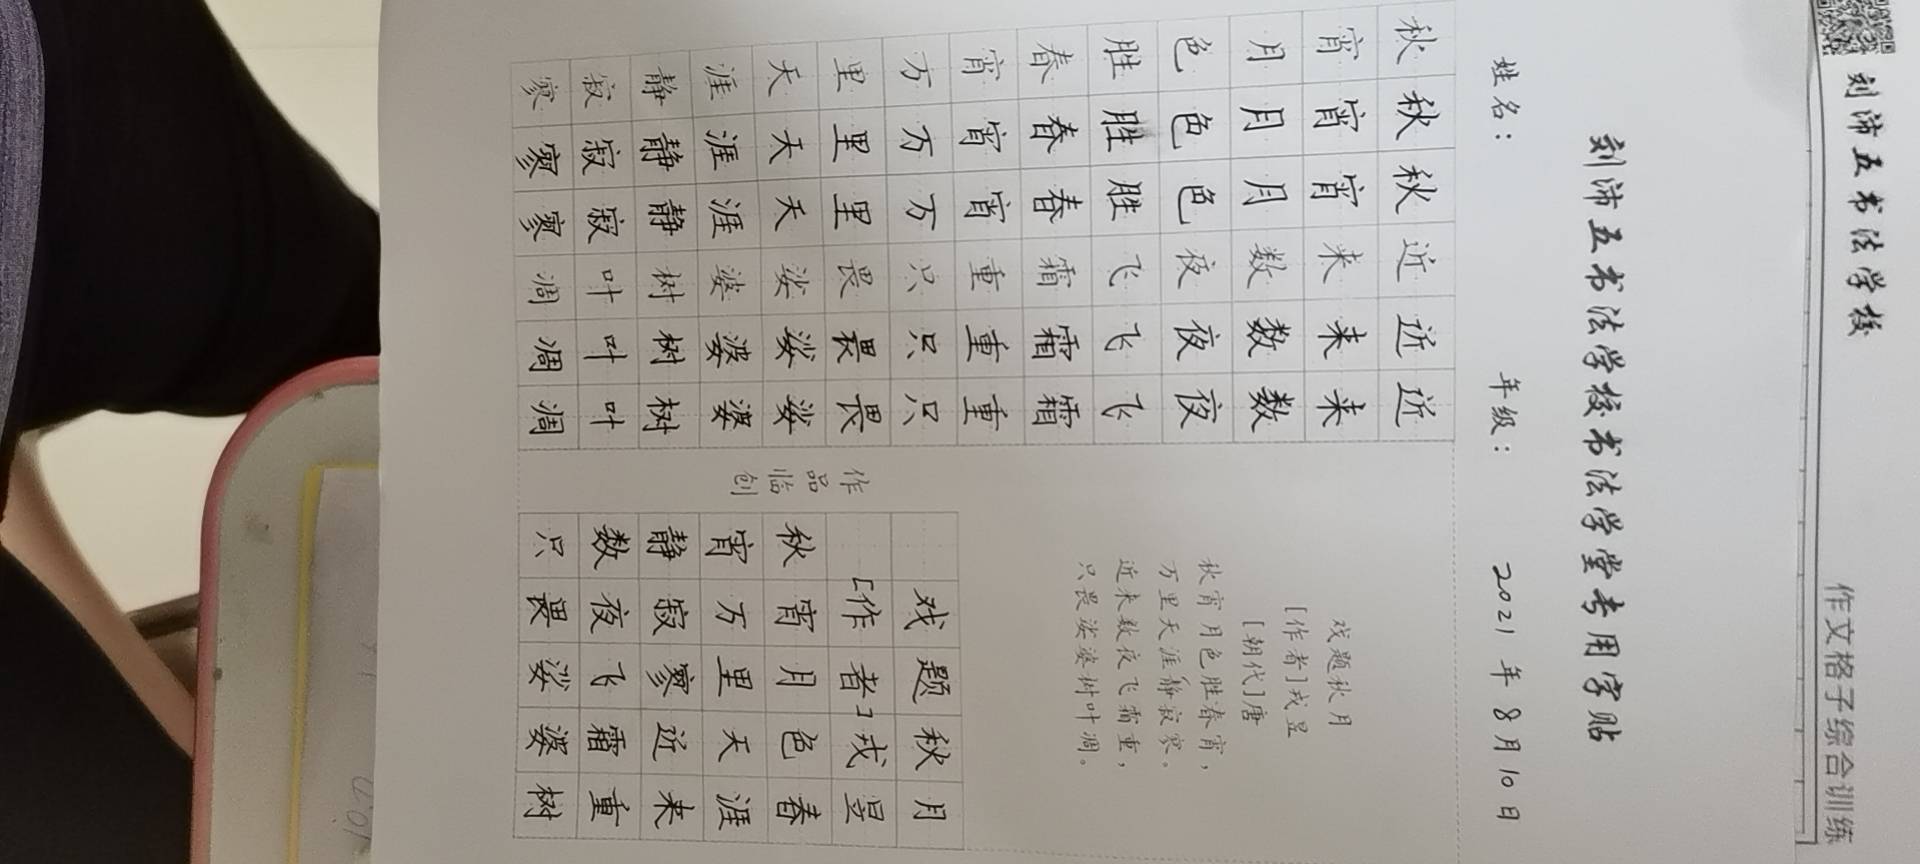 刘沛五书法学校
作文格子综合训练
刘沛五书法学校书法学堂专用字贴
姓名： 年级： 2021年8月10日
秋秋秋近近近
宵宵宵来来来
月月月数数数
色色色夜夜夜
胜胜胜飞飞飞
春春春霜霜霜
宵宵宵重重重
万万万只只只
里里里畏畏畏
天天天娑娑娑
涯涯涯婆婆婆
静静静树树树
寂寂寂叶叶叶
寥寥寥凋凋凋
戏题秋月
[作者]戎昱
[朝代]唐
秋宵月色胜春宵，
万里天涯静寂寥。
近来数夜飞霜重，
只畏娑婆树叶凋。
作品临创
戏题秋月
[作者]戎昱
秋宵月色春
宵万里天涯
静寂寥近来
数夜飞霜重
只畏娑婆树